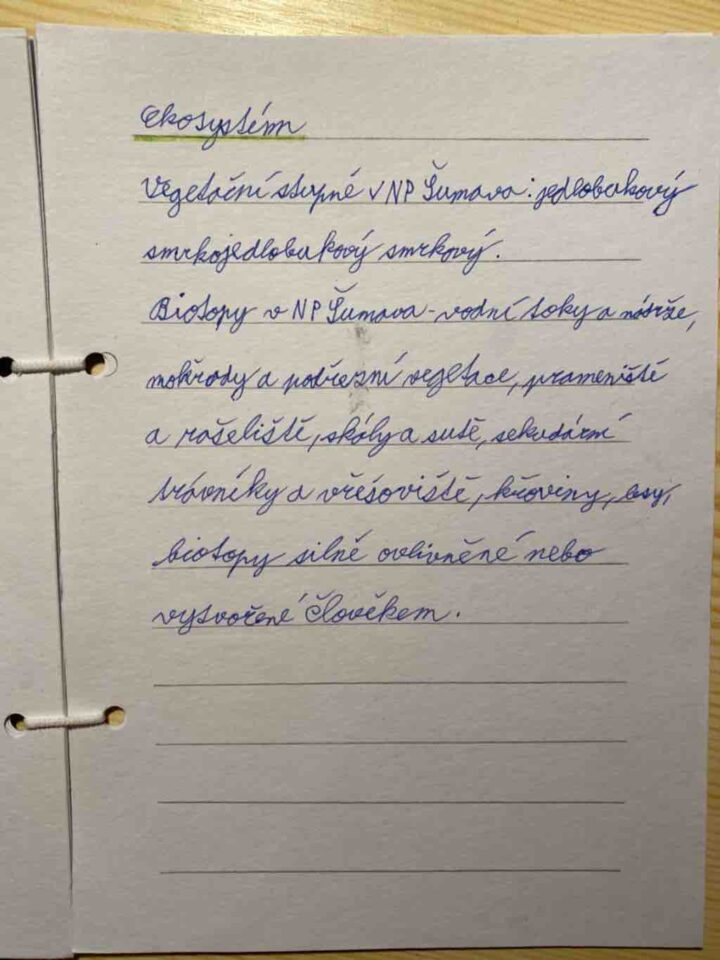 Ekosystém
Vegetační stupně v NP Šumava: jedlobukový
smrkojedlobukový smrkový.
Biotopy v NP Šumava - vodní toky a nádrže,
mokřady a podřezní vegetace, prameniště
a rašeliště, skály a sutě, sekudární
trávníky a vřesoviště, křoviny, lesy,
biotopy silně ovlivněné nebo
vytvořené člověkem.